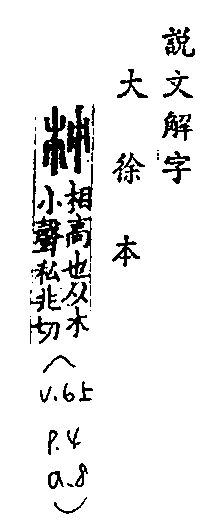 說文解字
大徐本
相高也从木
小聲私兆切
(v.6上
p.4
a.8)